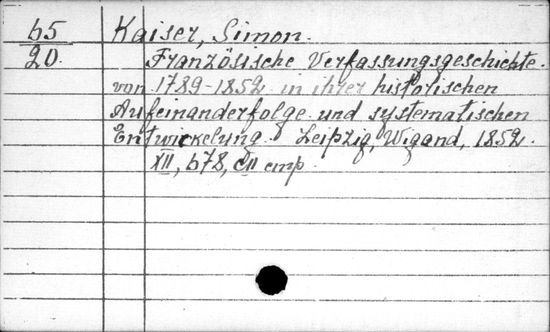 65 Kaiser, Simon.
20. Französische Verfassungsgeschichte.
von 1789-1852 in ihrer historischen
Aufeinanderfolge und systematischen
Entwickelung. Leipzig, Wigand, 1852.
XII, 678, CII стр.